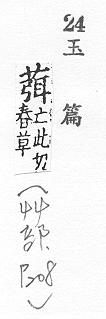 24
玉篇
葞
亡此切
春草
(艸部 B08)